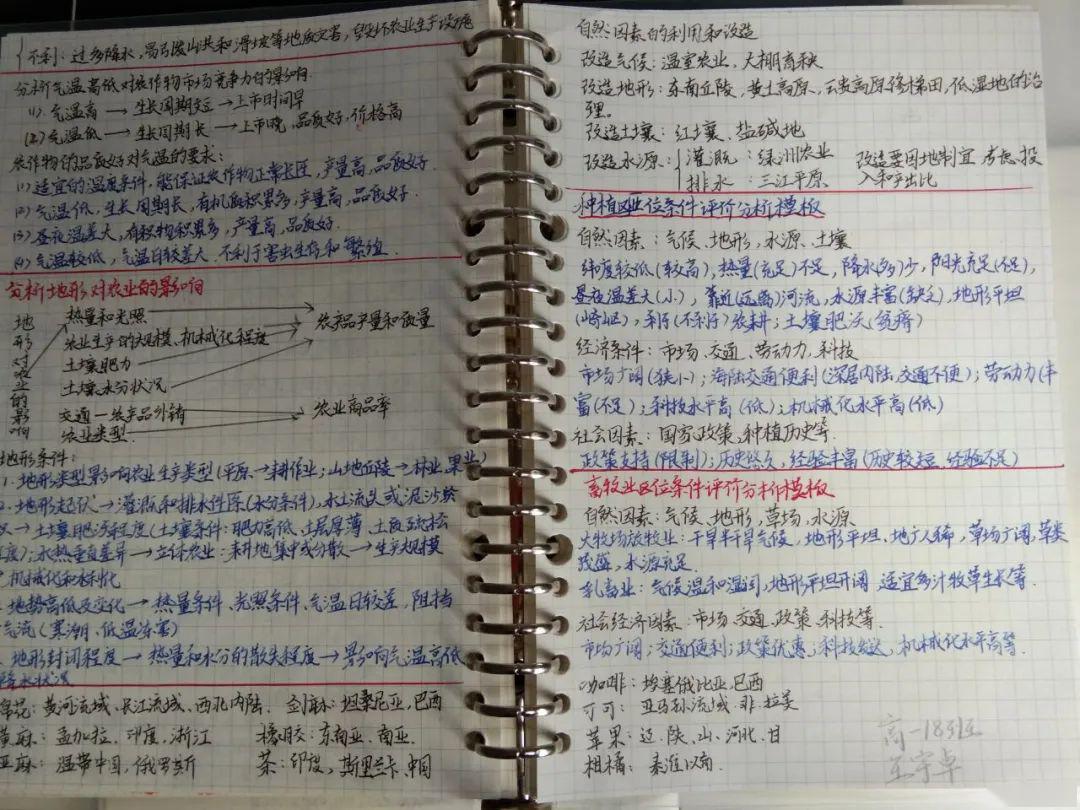 不利：过多降水，易引发山洪和滑坡等地质灾害，毁坏农业生产设施
分析气温高低对农作物市场竞争力的影响
(1) 气温高→生长周期短→上市时间早
(2) 气温低→生长周期长→上市晚，品质好，价格高
农作物的品质好对气温的要求：
(1) 适宜的温度条件，能保证农作物正常长庄，产量高，品质好
(2) 气温低，生长周期长，有机质积累多，产量高，品质好．
(3) 昼夜温差大，有积物积累多，产量高，品质好．
(4) 气温较低，气温日较差大，不利于害虫生存和繁殖．
分析地形对农业的影响
地形对农业的影响
热量和光照
农业生产的规模、机械化程度
土壤肥力
土壤水分状况
交通—农产品外销
农业类型
农产品产量和质量
农业商品率
地形条件：
1. 地形类型影响农业生产类型(平原→耕作业；山地丘陵→林业、果业)
地形起伏→灌溉和排水条件(水分条件)，水土流失或泥沙淤
→土壤肥沃程度(土壤条件：肥力高低、土层厚薄、土质疏松
度)；水热垂直差异→立体农业：耕地集中或分散→生产规模
机械化和标出化
地势高低及变化→热量条件、光照条件、气温日较差，阻挡
气流(寒潮、低温冻害)
地形封闭程度→热量和水分的散失程度→影响气温高低
降水状况
棉花：黄河流域、长江流域、西北内陆． 剑麻：坦桑尼亚、巴西
黄麻：孟加拉、印度、浙江 橡胶：东南亚、南亚．
亚麻：温带中国，俄罗斯 茶：印度，斯里兰卡、中国
自然因素的利用和改造
改造气候：温室农业，大棚育秧
改造地形：东南丘陵，黄土高原，云贵高原修梯田，低湿地的治
理。
改造土壤：红壤、盐碱地
改造水源：灌溉：绿洲农业 改造要因地制宜 考虑投
排水：三江平原 入和产出比
种植业区位条件评价分析模板
自然因素：气候、地形，水源、土壤
纬度较低(较高)，热量(充足)不足，降水(多)少，阳光充足(不足)，
昼夜温差大(小)，靠近(远离)河流，水源丰富(缺乏)，地形平坦
(崎岖)，利于(不利于)农耕；土壤肥沃(贫瘠)
经济条件：市场、交通、劳动力、科技
市场广阔(狭小)；海陆交通便利(深居内陆，交通不便)；劳动力(丰
富(不足)；科技水平高(低)；机械化水平高(低)
社会因素：国家政策，种植历史等．
政策支持(限制)；历史悠久，经验丰富(历史较短，经验不足)
畜牧业区位条件评价分析模板
自然因素：气候、地形，草场，水源
大牧场放牧业：干旱半干旱气候，地形平坦，地广人稀，草场广阔，草类
茂盛，水源充足．
乳畜业：气候温和湿润，地形平坦开阔，适宜多汁牧草生长等．
社会经济因素：市场、交通、政策、科技等．
市场广阔；交通便利；政策优惠；科技发达，机械化水平高等．
咖啡：埃塞俄比亚，巴西
可可：亚马孙流域、非、拉美
苹果：辽、陕、山、河北、甘
柑橘：秦淮以南．
高一18班
王宇卓